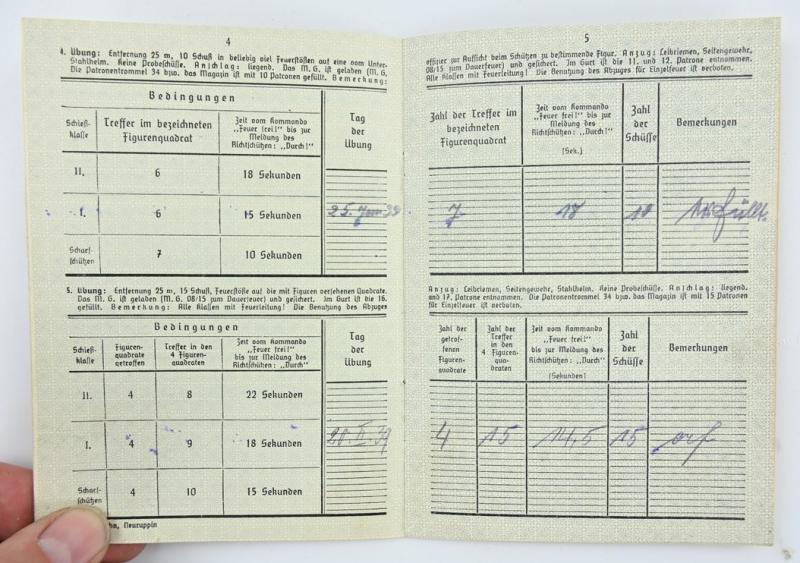 4
4. Übung: Entfernung 25 m, 10 Schuß in beliebig viel Feuerstößen auf eine vom Unter-
Stahlhelm. Keine Probeschüsse. Anschlag: liegend. Das M. G. ist geladen (M. G.
Die Patronentrommel 34 bzw. das Magazin ist mit 10 Patronen gefüllt. Bemerkung:
Bedingungen
Schieß-
klasse
Treffer im bezeichneten
Figurenquadrat
Zeit vom Kommando
„Feuer frei!" bis zur
Meldung des
Richtschützen: „Durch!"
Tag
der
Übung
II.
6
18 Sekunden
I.
6
15 Sekunden
25.
39
Scharf-
schützen
7
10 Sekunden
5. Übung: Entfernung 25 m, 15 Schuß, Feuerstöße auf die mit Figuren versehenen Quadrate.
Das M. G. ist geladen (M. G. 08/15 zum Dauerfeuer) und gesichert. Im Gurt ist die 16.
gefüllt. Bemerkung: Alle Klassen mit Feuerleitung! Die Benutzung des Abzuges
Bedingungen
Schieß-
klasse
Figuren-
quadrate
getroffen
Treffer in den
4 Figuren-
quadraten
Zeit vom Kommando
„Feuer frei!"
bis zur Meldung des
Richtschützen: „Durch"
Tag
der
Übung
II.
4
8
22 Sekunden
I.
4
9
18 Sekunden
20. II. 39
Scharf-
schützen
4
10
15 Sekunden
Neuruppin
5
offizier zur Aufsicht beim Schützen zu bestimmende Figur. Anzug: Leibriemen, Seitengewehr,
08/15 zum Dauerfeuer) und gesichert. Im Gurt ist die 11. und 12. Patrone entnommen.
Alle Klassen mit Feuerleitung! Die Benutzung des Abzuges für Einzelfeuer ist verboten.
Zahl der Treffer im
bezeichneten
Figurenquadrat
Zeit vom Kommando
„Feuer frei!" bis zur
Meldung des
Richtschützen: „Durch!"
(Sek.)
Zahl
der
Schüsse
Bemerkungen
7
10
Anzug: Leibriemen, Seitengewehr, Stahlhelm. Keine Probeschüsse. Anschlag: liegend.
und 17. Patrone entnommen. Die Patronentrommel 34 bzw. das Magazin ist mit 15 Patronen
für Einzelfeuer ist verboten.
Zahl der
getrof-
fenen
Figuren-
quadrate
Zahl der
Treffer
in den
4 Figuren-
qua-
draten
Zeit vom Kommando
„Feuer frei!"
bis zur Meldung des
Richtschützen: „Durch"
(Sekunden)
Zahl
der
Schüsse
Bemerkungen
4
15
14,5
15
erf